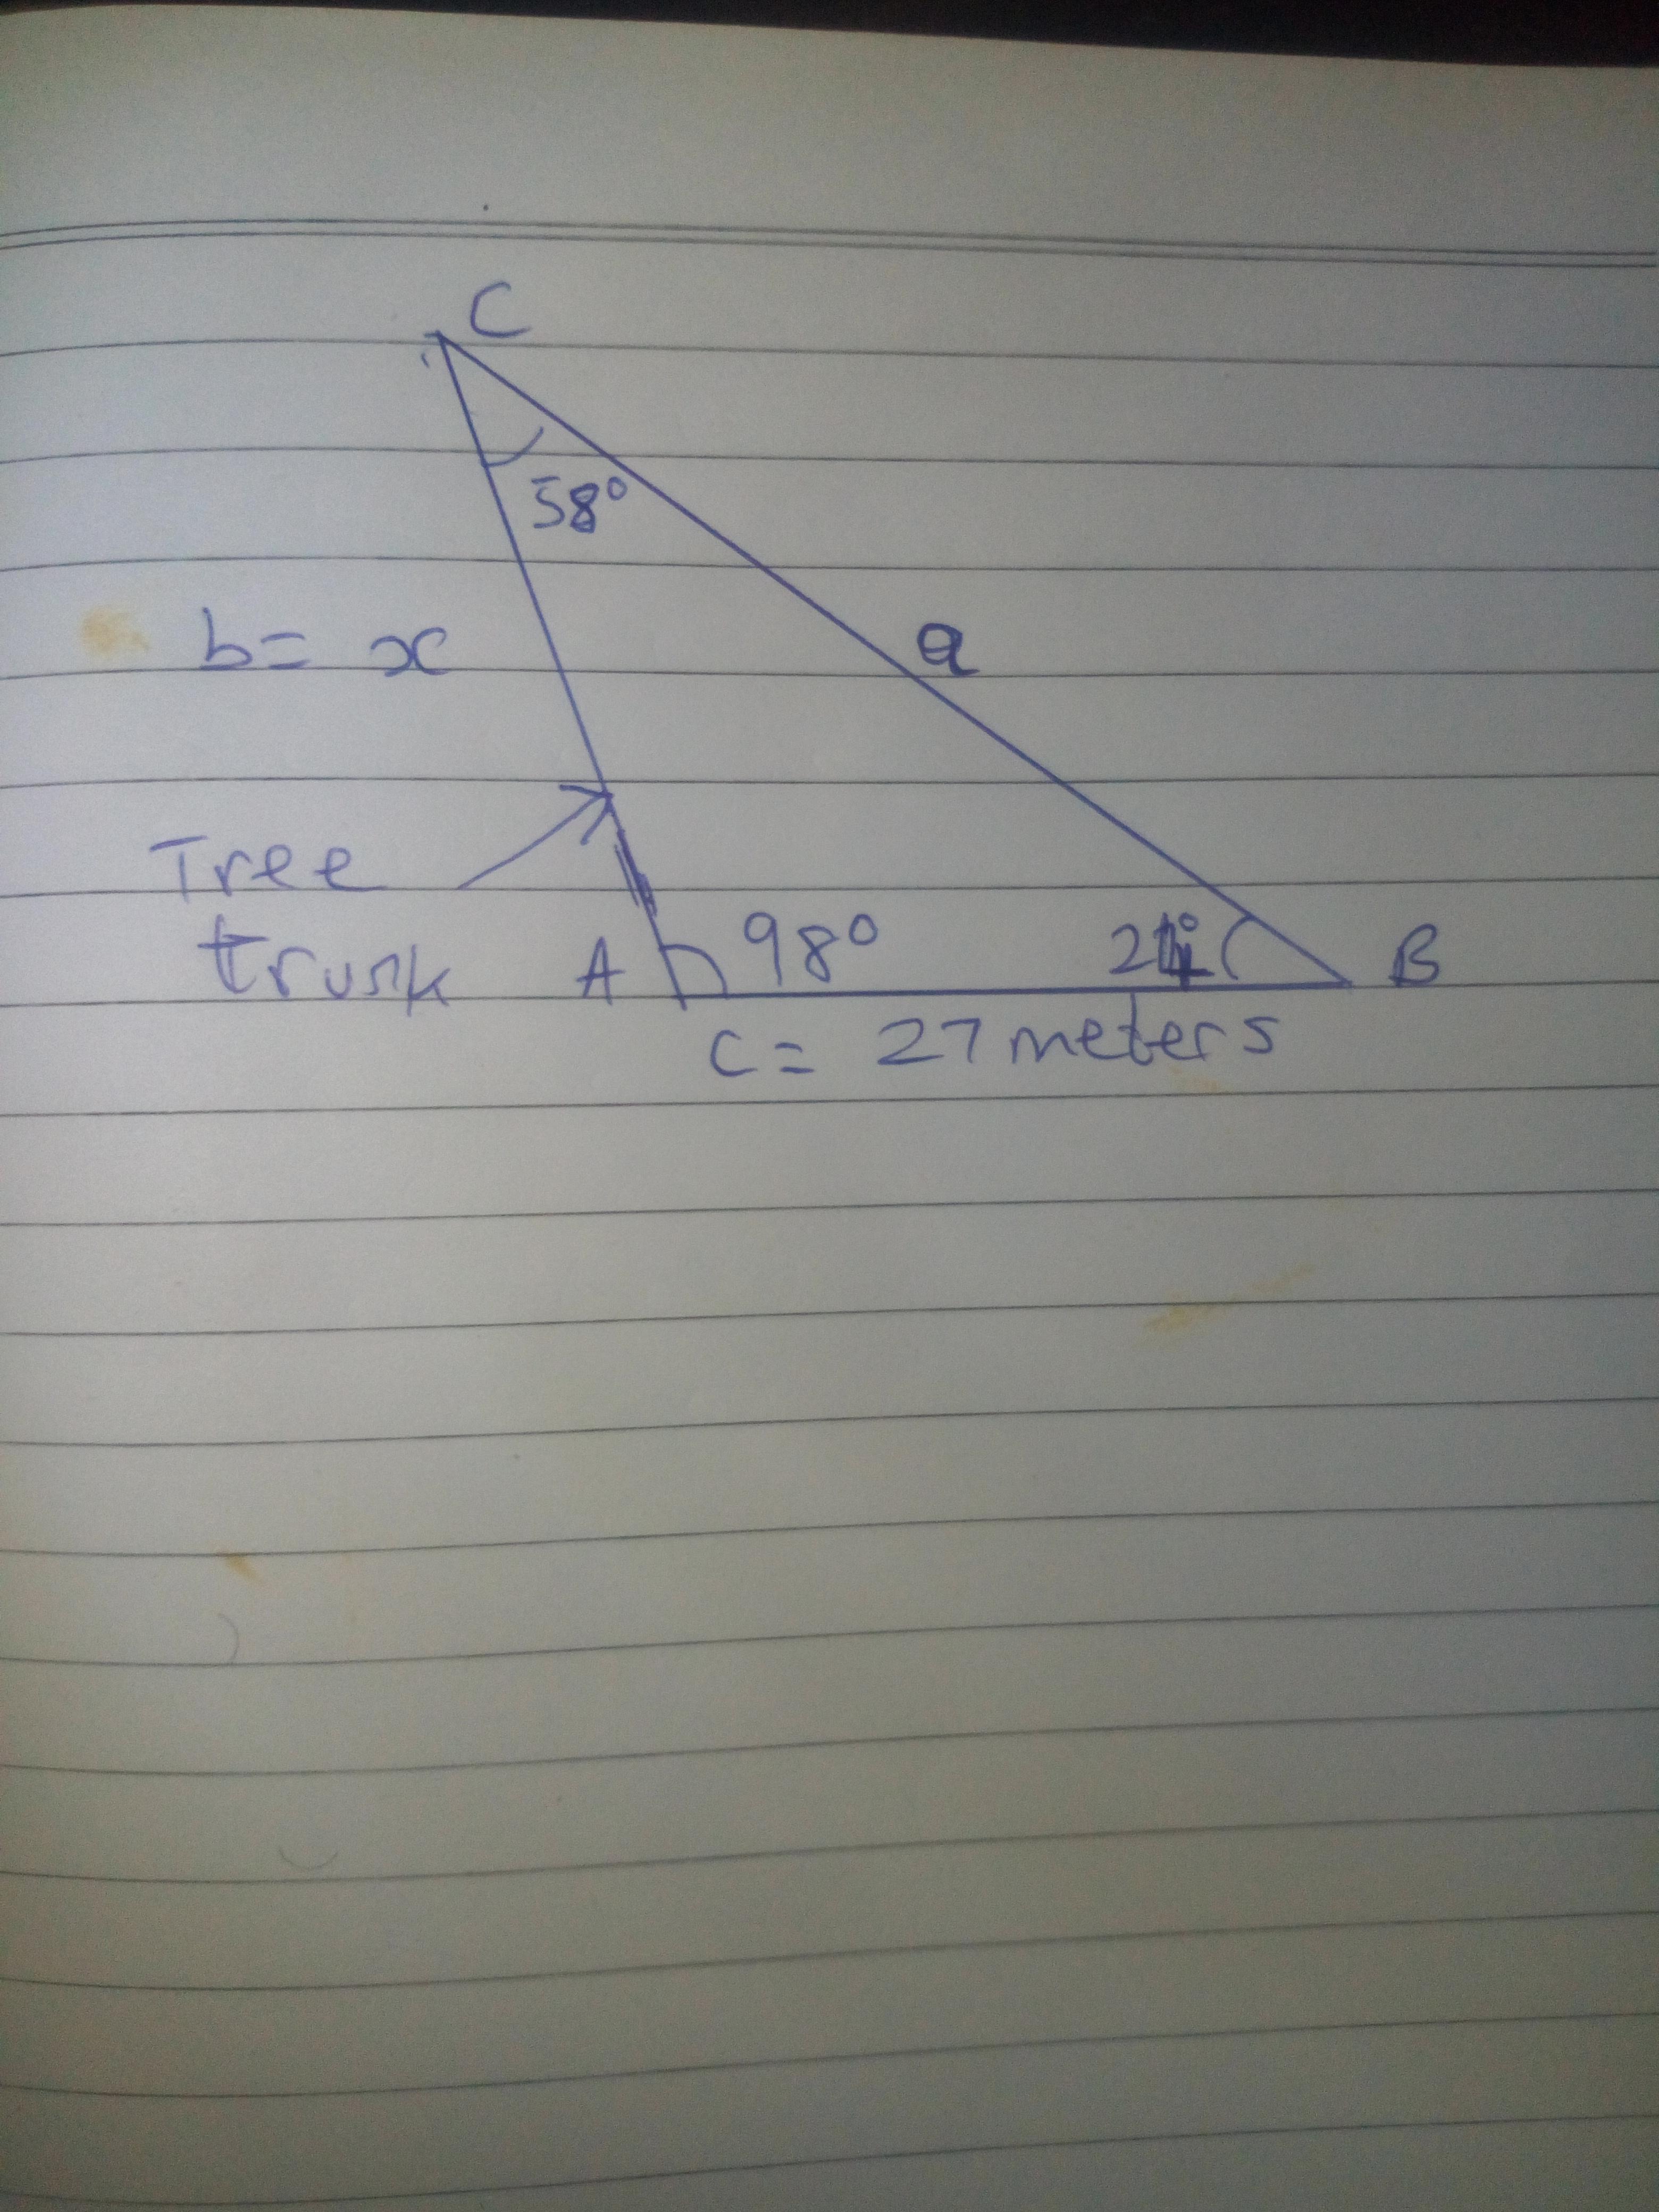 C
58°
b = x
a
Tree
trunk
A
98°
24°
B
C = 27 meters